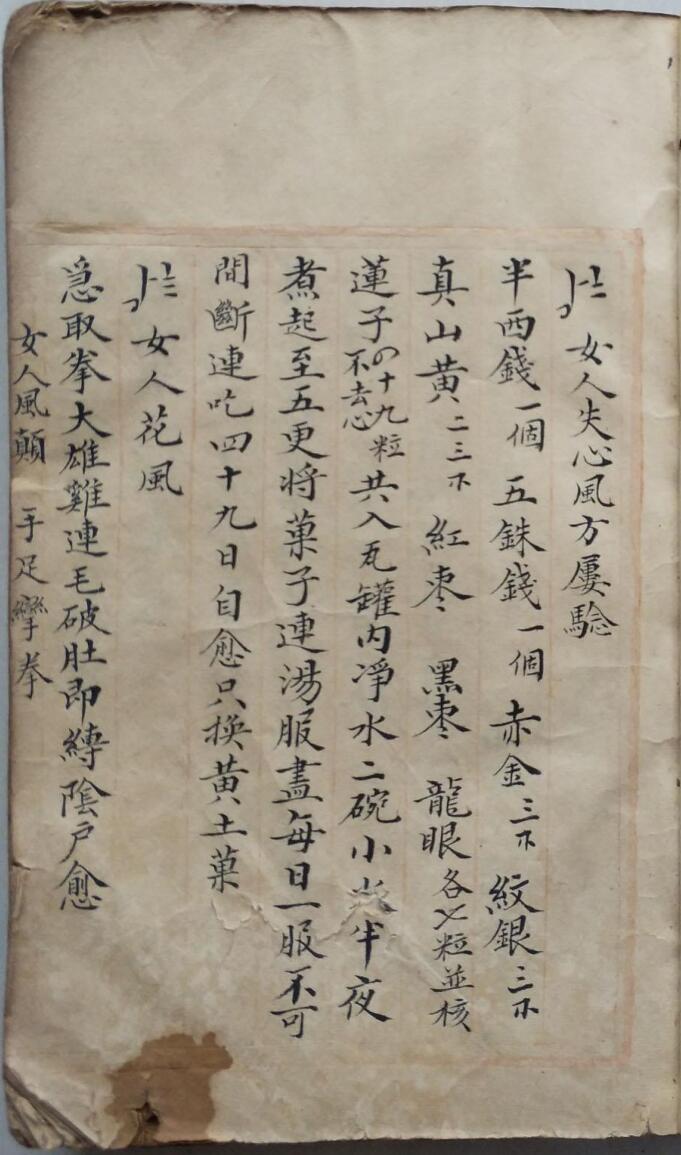 女人失心風方屢騐
半西錢一個 五銖錢一個 赤金三下 紋銀三下
真山黄二三下 紅枣 黑枣 龍眼各七粒並核
蓮子四十九粒不去心共入瓦罐内凈水二碗小火半夜
煮起至五更将菓子連湯服盡每日一服不可
間斷連吃四十九日自愈只换黄土菓
女人花風
急取拳大雄雞連毛破肚即縛陰户愈
女人風顛 手足孿拳